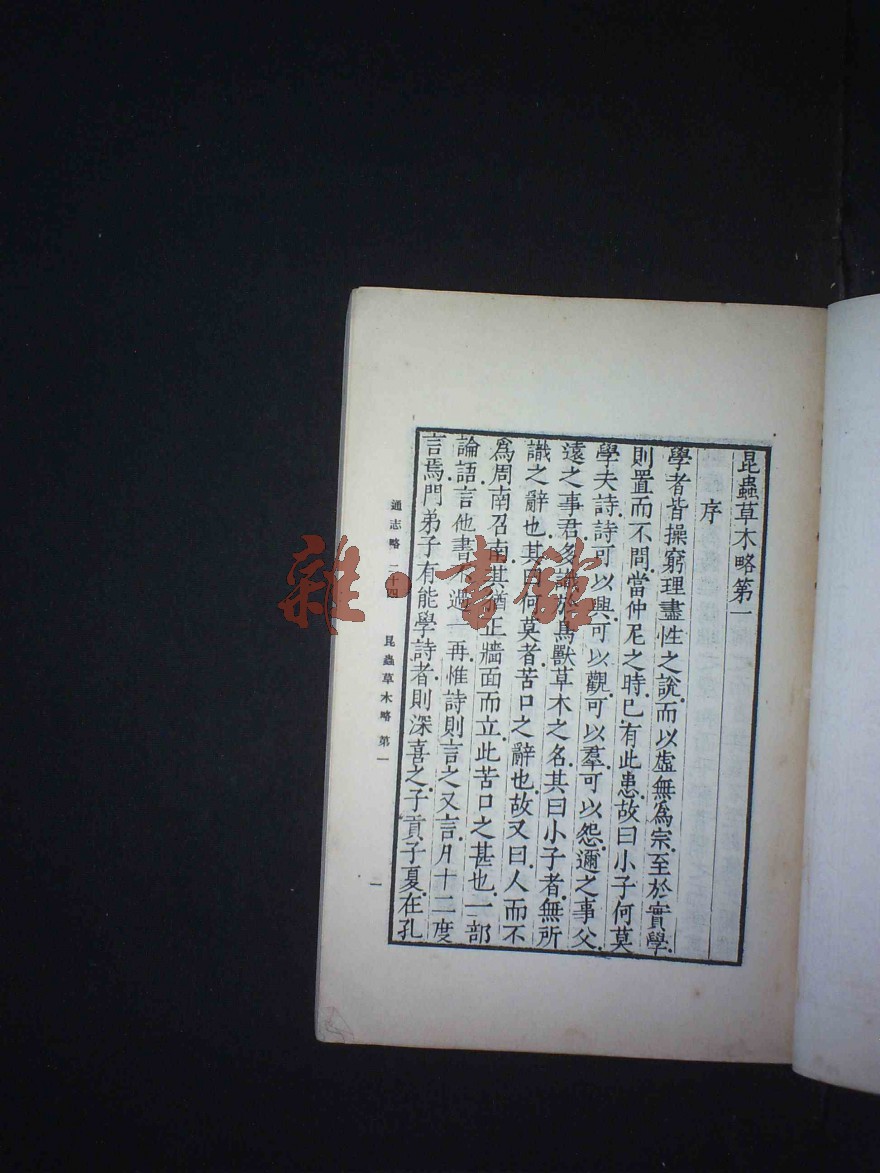 昆蟲草木略第一
序
學者皆操窮理盡性之說.而以虛無爲宗.至於實學.
則置而不問.當仲尼之時.已有此患.故曰小子何莫
學夫詩.詩可以興.可以觀.可以羣.可以怨.邇之事父.
遠之事君.多識於鳥獸草木之名.其曰小子者.無所
識之辭也.其曰何莫者.苦口之辭也.故又曰.人而不
爲周南召南.其猶正牆面而立.此苦口之甚也.一部
論語.言他書不過一再.惟詩則言之又言.凡十二度
言焉.門弟子有能學詩者.則深喜之.子貢子夏.在孔
通志略 二十四 昆蟲草木略 第一 一
雜·書館